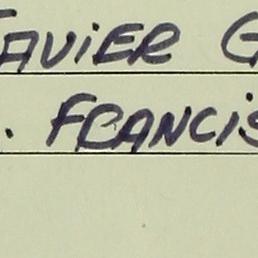 AVIER G
. FRANCIS